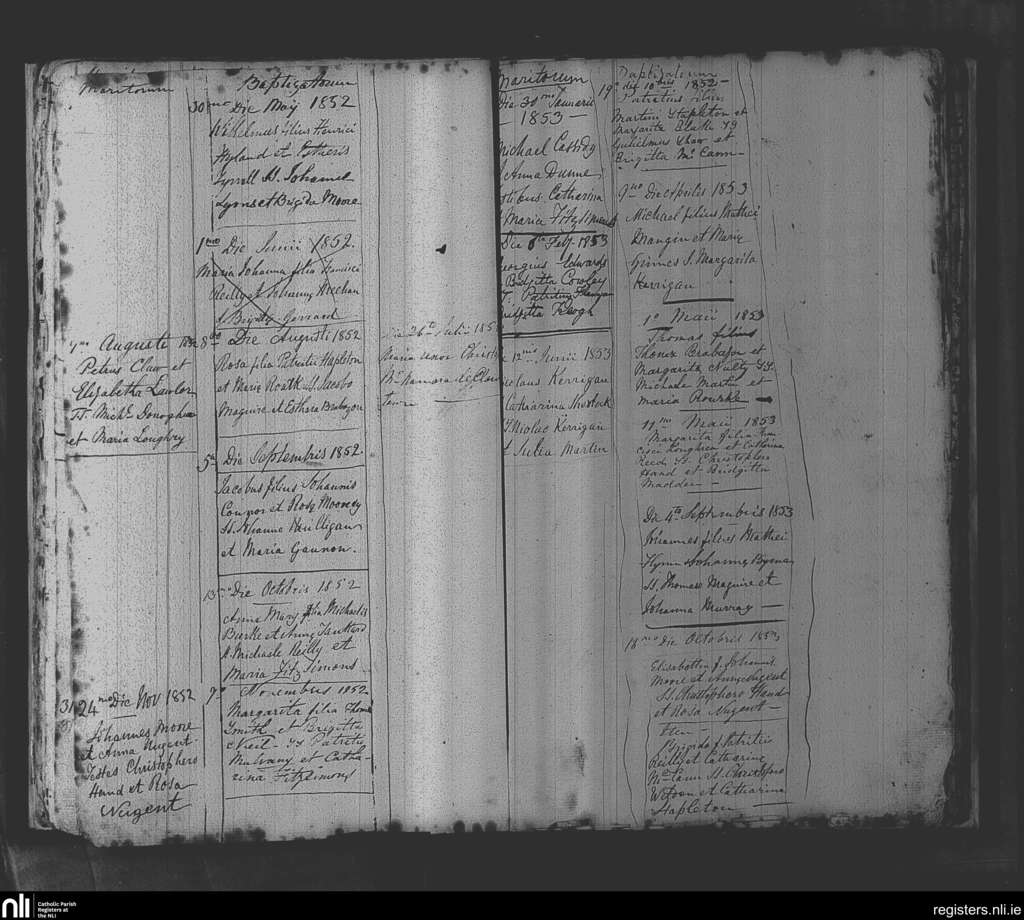 Maritorum
7mo Augusti 1852
Petrus Claw et
Elizabetha Lawlor
TT. Michl Donoghue
et Maria Loughry
24 mo Die Nov 1852
Johannes Moore
et Anna Nugent
Testes Christophero
Hand et Rosa
Nugent
Baptizatorum
30 mo Die Maij 1852
filius Henrici
Hyland et
Tyrrell SS. Johanne
Lyons et Brigida Moore
1mo Die Junii 1852.
Maria Johanna filia Francisci
Reilly Johanna Meehan
Gerrard
8 Die Augusti 1852
Rosa filia Patricii Stapleton
et Maria SS. Jacobo
Maguire et Esthera Brabazon
5 Die Septembris 1852.
Jacobus filius Johannis
Connor et Rosa Mooney
SS. Johanne
et Maria Gannon.
13 Die Octobris 1852
Anna Mary filia Michaelis
Burke et Anna Tankard
SS. Michaele Reilly et
Maria Fitz Simons
7o Novembris 1852
Margarita filia Thomae
Smith et Brigitta
SS Patritio
Mulvany et Catha-
rina Fitzsimons
Die 26to Julii 185
Maria uxor
McNamara
Maritorum
Die 30mo Januarii
- 1853 -
Michael Cassidy
Anna Dunne
Catharina
Maria Fitzsimons
Die 6ta Feby 1853
Georgius Edwards
Bridgitta Cowley
T. Patritius
Bridgitta Keogh
12 mo Junii 1853
Nicolaus Kerrigan
Catharina Sherlock
Nicolao Kerrigan
et Julia Martin
Baptizatorum
19o die 10bris 1852-
Patritius filius
Martini Stapleton et
Margarita Blake SS
Gulielmus Shaw et
Brigitta McCann-
9no Die Aprilis 1853
Michael filius Matthei
Mangin et Maria
Grimes S. Margarita
Kerrigan
1o Maii 1853
Thomas filius
Thomae Brabazon et
Margarita Nulty SS.
Michaele Martin et
Maria Rourke
11mo Maii 1853
Margarita filia Fran
cisci Loughren et Catharina
Reed SS. Christophero
Hand et Bridgitta
Madden -
Die 4ta Septembris 1853
Johannes filius Matthei
Flynn Johanna Byrne
SS. Thomas Maguire et
Johanna Murray -
18mo Die Octobris 1853
Elisabetha f. Johannis
Moore et Anna Nugent
SS. Christophero Hand
et Rosa Nugent -
Brigida f. Patritii
Reilly et Catharina
McCann SS. Christophero
Watson et Catharina
Stapleton
nli
Catholic Parish
Registers at
the NLI
registers.nli.ie